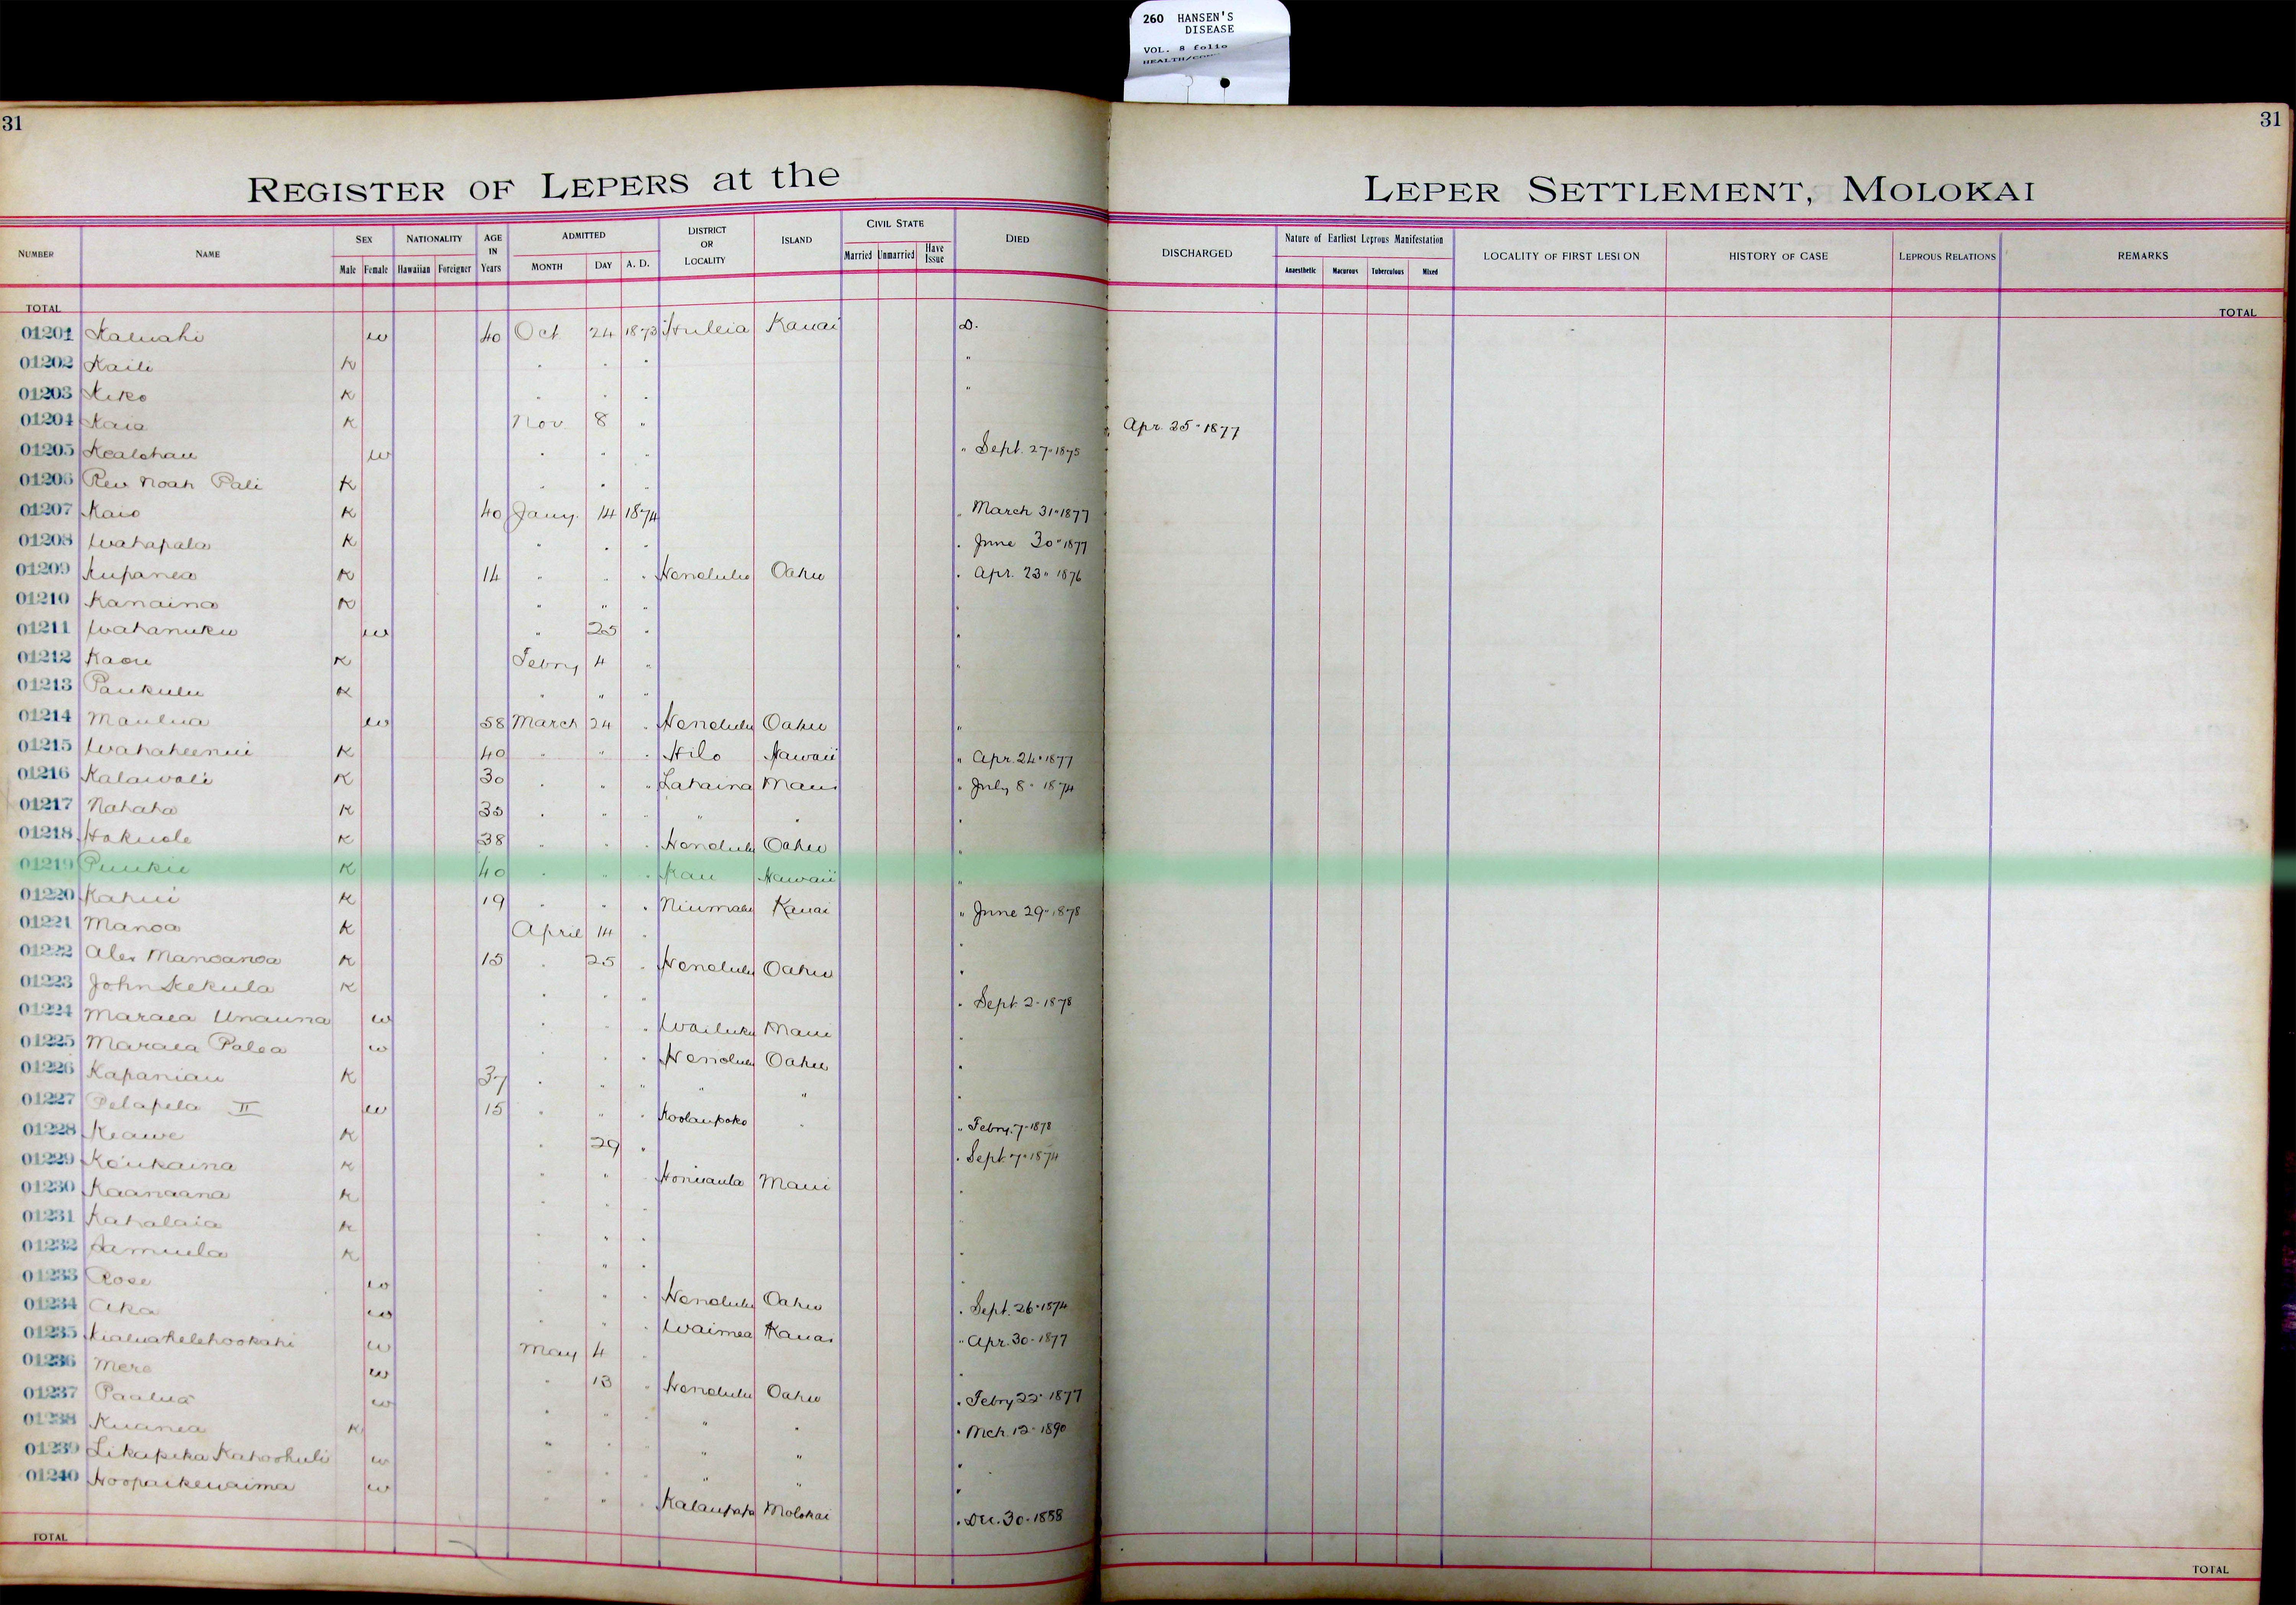 260 HANSEN'S
DISEASE
VOL. 8 folio
31 31
REGISTER OF LEPERS at the LEPER SETTLEMENT, MOLOKAI
NUMBER NAME SEX NATIONALITY AGE IN Years ADMITTED DISTRICT OR LOCALITY ISLAND CIVIL STATE DIED DISCHARGED Nature of Earliest Leprous Manifestation LOCALITY OF FIRST LESION HISTORY OF CASE LEPROUS RELATIONS REMARKS
Male Female Hawaiian Foreigner MONTH DAY A. D. Married Unmarried Have Issue Anaesthetic Macurous Tuberculous Mixed
TOTAL TOTAL
01201 Kaluahi w 40 Oct 24 1873 Huleia Kauai D.
01202 Kaili K " " " "
01203 Kiko K " " " "
01204 Kaia K Nov. 8 " " Apr. 25" 1877
01205 Kealohau w " " " " Sept. 27" 1875
01206 Rev Noah Pali K " " "
01207 Kaio K 40 Jany. 14 1874 " March 31" 1877
01208 Wahapala K " " " " June 30" 1877
01209 Kupanea K 14 " " " Honolulu Oahu " Apr. 23" 1876
01210 Kanaina K " " " "
01211 Wahanuku w " 25 " "
01212 Kaou K Febry 4 " "
01213 Paukulu K " " "
01214 Maulua w 58 March 24 " Honolulu Oahu "
01215 Wahaheenui K 40 " " " Hilo Hawaii " Apr. 24" 1877
01216 Kalawali K 30 " " " Lahaina Maui " July 8" 1874
01217 Nahaha K 35 " " " " " "
01218 Hakuole K 38 " " " Honolulu Oahu "
01219 Puukie K 40 " " " Kau Hawaii "
01220 Kahui K 19 " " " Niumalu Kauai " June 29" 1878
01221 Manoa K April 14 " "
01222 Alex Manoanoa K 15 " 25 " Honolulu Oahu "
01223 John Kekula K " " " " Sept. 2" 1878
01224 Maraea Unauna w " " " Wailuku Maui "
01225 Maraea Palea w " " " Honolulu Oahu "
01226 Kapaniau K 37 " " " " " "
01227 Pelapela II w 15 " " " Koolaupoko " " Febry. 7" 1878
01228 Keawe K " 29 " " Sept. 7" 1874
01229 Koukaina K " " " Honuaula Maui "
01230 Kaanaana K " " "
01231 Kahalaia K " " " "
01232 Samuela K " " " "
01233 Rose w " " " Honolulu Oahu " Sept. 26" 1874
01234 Aka w " " " Waimea Kauai " Apr. 30" 1877
01235 w May 4 " "
01236 Mere w " 13 " Honolulu Oahu " Febry 22" 1877
01237 Paalua w " " " " " " Mch. 12" 1890
01238 Kuanea K " " " " " "
01239 Likapeka Kahoohuli w " " " " " "
01240 Hoopaikewaima w " " " Kalaupapa Molokai " Dec. 30" 1888
TOTAL TOTAL